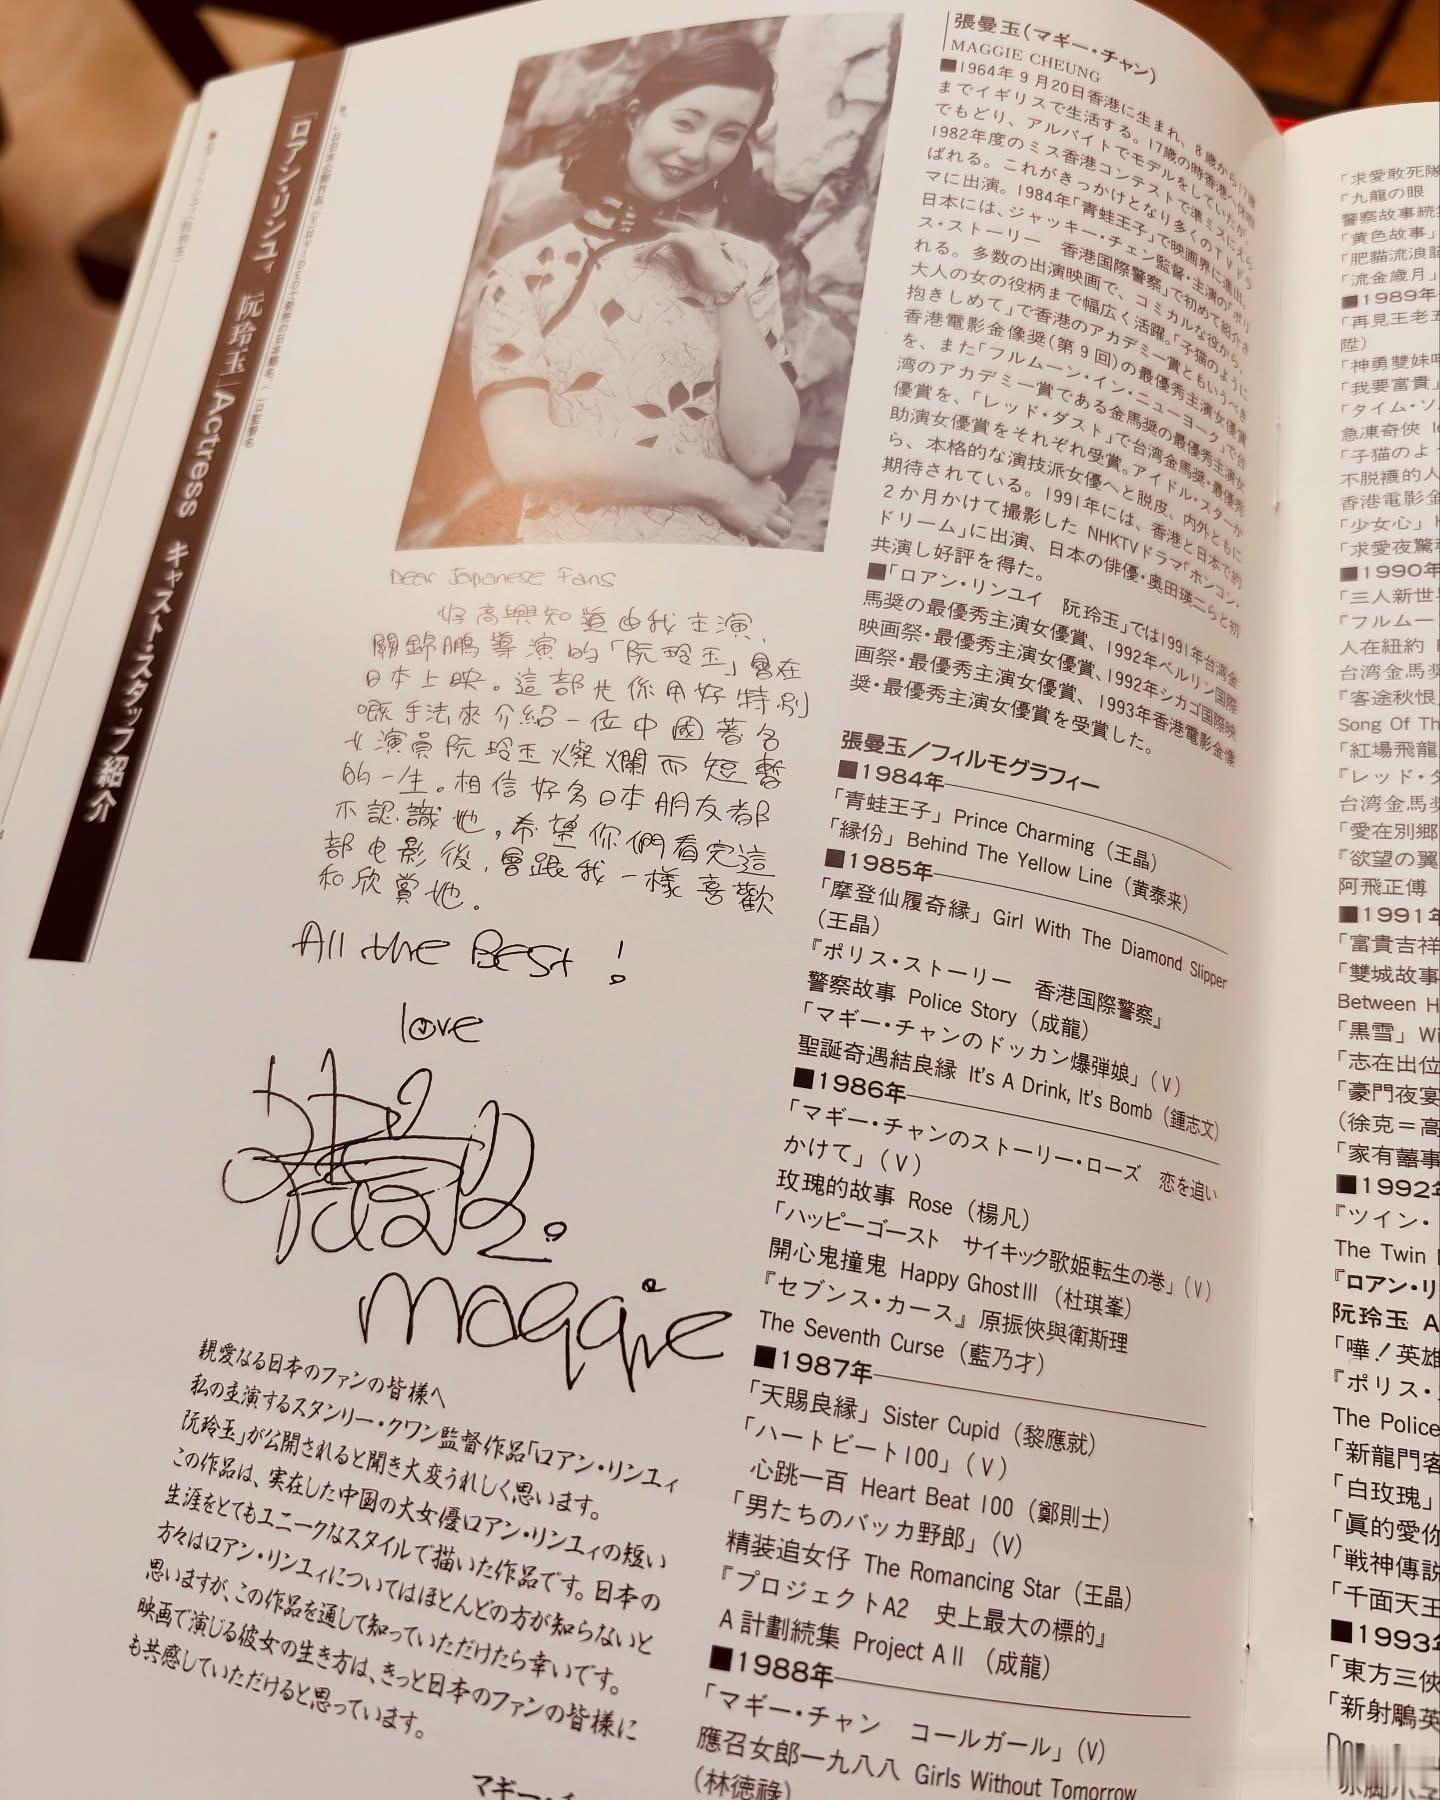 「ロアン・リンユィ 阮玲玉」Actress キャスト・スタッフ紹介
Dear Japanese Fans
好高興知道由我主演、
關錦鵬導演的「阮玲玉」會在
日本上映。這部片係用好特別
嘅手法來介紹一位中國著名
女演員阮玲玉燦爛而短暫
的一生。相信好多日本朋友都
不認識她,希望你們看完這
部电影後,會跟我一樣喜歡
和欣賞她。
All the Best!
love
Maggie
親愛なる日本のファンの皆様へ
私の主演するスタンリー・クワン監督作品「ロアン・リンユィ
阮玲玉」が公開されると聞き大変うれしく思います。
この作品は、実在した中国の大女優ロアン・リンユィの短い
生涯をとてもユニークなスタイルで描いた作品です。日本の
方々はロアン・リンユィについてはほとんどの方が知らないと
思いますが、この作品を通して知っていただけたら幸いです。
映画で演じる彼女の生き方は、きっと日本のファンの皆様に
も共感していただけると思っています。
マギー・チ
張曼玉(マギー・チャン)
MAGGIE CHEUNG
■1964年9月20日香港に生まれ、8歳から17歳
までイギリスで生活する。17歳の時香港へ休暇
でもどり、アルバイトでモデルをしていたが、
1982年度のミス香港コンテストで準ミスにえら
ばれる。これがきっかけとなり多くのTVドラ
マに出演。1984年「青蛙王子」で映画界に進出。
日本には、ジャッキー・チェン監督・主演の「ポリ
ス・ストーリー 香港国際警察」で初めて紹介さ
れる。多数の出演映画で、コミカルな役から、
大人の女の役柄まで幅広く活躍。「子猫のように
抱きしめて」で香港のアカデミー賞ともいうべき
香港電影金像奨(第9回)の最優秀主演女優賞
を、また「フルムーン・イン・ニューヨーク」で台
湾のアカデミー賞である金馬奨の最優秀主演女
優賞を、「レッド・ダスト」で台湾金馬奨・最優秀
助演女優賞をそれぞれ受賞。アイドル・スターか
ら、本格的な演技派女優へと脱皮、内外ともに
期待されている。1991年には、香港と日本で約
2か月かけて撮影したNHKTVドラマ「ホンコン・
ドリーム」に出演、日本の俳優・奥田瑛二らと初
共演し好評を得た。
■「ロアン・リンユイ 阮玲玉」では1991年台湾金
馬奨の最優秀主演女優賞、1992年ベルリン国際
映画祭・最優秀主演女優賞、1992年シカゴ国際映
画祭・最優秀主演女優賞、1993年香港電影金像
奨・最優秀主演女優賞を受賞した。
張曼玉/フィルモグラフィー
■1984年
「青蛙王子」Prince Charming(王晶)
「縁份」Behind The Yellow Line(黄泰来)
■1985年
「摩登仙履奇縁」Girl With The Diamond Slipper
(王晶)
『ポリス・ストーリー 香港国際警察』
警察故事 Police Story(成龍)
「マギー・チャンのドッカン爆弾娘」(V)
聖誕奇遇結良縁 It's A Drink, It's Bomb(鍾志文)
■1986年
「マギー・チャンのストーリー・ローズ 恋を追い
かけて」(V)
玫瑰的故事 Rose(楊凡)
「ハッピーゴースト サイキック歌姫転生の巻」(V)
開心鬼撞鬼 Happy GhostⅢ(杜琪峯)
『セブンス・カース』原振侠與衛斯理
The Seventh Curse(藍乃才)
■1987年
「天賜良縁」Sister Cupid(黎應就)
「ハートビート100」(V)
心跳一百 Heart Beat 100(鄭則士)
「男たちのバッカ野郎」(V)
精装追女仔 The Romancing Star(王晶)
『プロジェクトA2 史上最大の標的』
A計劃続集 Project AⅡ(成龍)
■1988年
「マギー・チャン コールガール」(V)
應召女郎一九八八 Girls Without Tomorrow
(林徳祿)
「求愛敢死隊
「九龍の眼
警察故事続集
「黄色故事」
「肥猫流浪記
「流金歳月」
■1989年
「再見王老五
陞)
「神勇雙妹
「我要富貴」
「タイム・ソ
急凍奇侠
「子猫のよう
不脱襪的人
香港電影金
「少女心」
「求愛夜驚魂
■1990年
「三人新世界
「フルムー
人在紐約
台湾金馬奨
「客途秋恨」
Song Of The
「紅場飛龍
『レッド・ダ
台湾金馬奨
「愛在別郷
「欲望の翼
阿飛正傅
■1991年
「富貴吉祥
「雙城故事
Between H
「黒雪」Wi
「志在出位
「豪門夜宴
(徐克=高
「家有囍事
■1992年
『ツイン・
The Twin
『ロアン・リ
阮玲玉 A
「嘩!英雄
『ポリス・
The Police
「新龍門客
「白玫瑰」
「眞的愛你
「戦神傳説
「千面天王
■1993年
「東方三侠
「新射鵰英